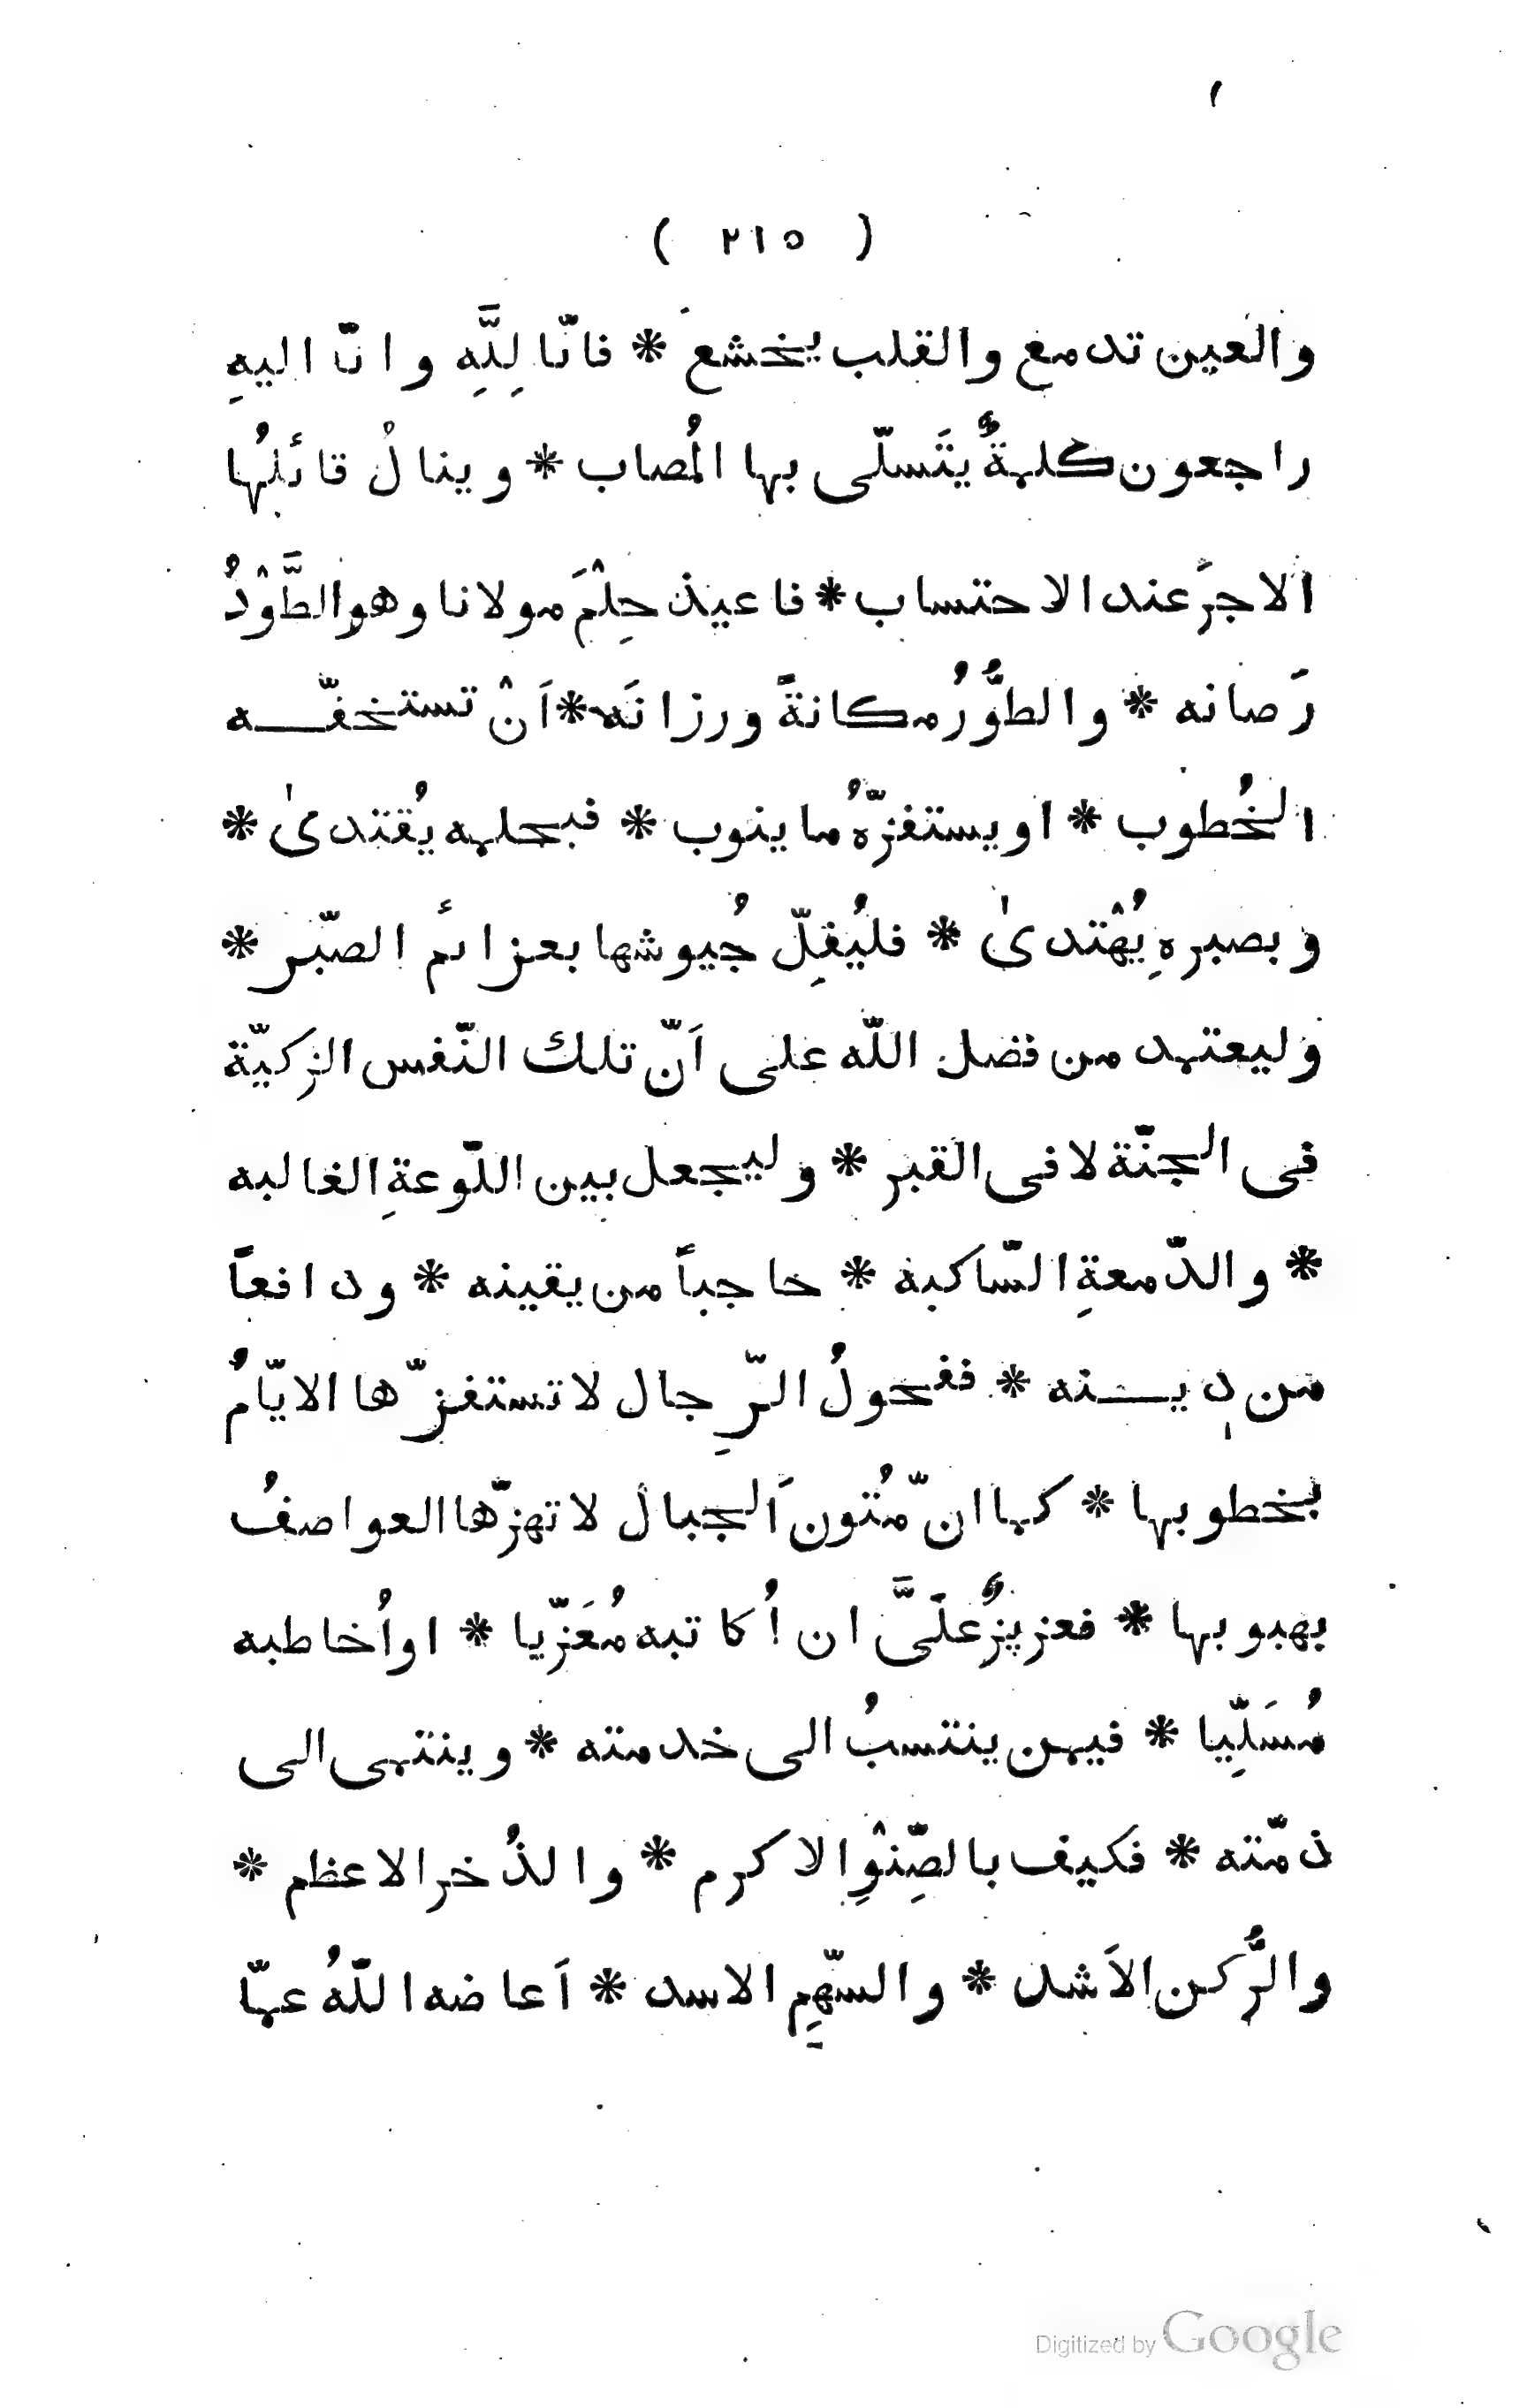 ( ٢١٥ )
والعين تدمع والقلب يخشعَ * فانّا لِلَّهِ وانّا اليهِ
راجعون كلمةٌ يتَسلّى بها المُصاب * وينالْ قائلُها
الاجرَ عند الاحتساب * فاعيذ حِلْمَ مولانا وهو الطَّوْدُ
رَصانه * والطَّوُرُ مكانةً ورزانَه * اَنْ تستخفّـــه
الخُطوب * او يستفزّهُ ما ينوب * فبحلمه يُقتدىٰ *
وبصبرهِ يُهْتدىٰ * فليُفِلّ جُيوشها بعزائم الصّبر *
وليعتمد من فضل اللّه على اَنّ تلك النّفس الزكيّة
فى الجنّة لا فى القبر * وليجعل بين اللّوعةِ الغالبه
* والدّمعةِ السّاكبة * حاجباً من يقينه * ودافعاً
من ديـــنه * ففحولُ الرّجِال لا تستفزّها الايّامُ
بخطوبها * كما انّ مُتونَ الجبال لا تهزّها العواصفُ
بهبوبها * فعزيزٌ علَىَّ ان اُكاتبه مُعَزّيا * او اُخاطبه
مُسَلِّيا * فيمن ينتسبُ الى خدمته * وينتمى الى
ذمّته * فكيف بالصِّنْوِ الاكرم * والذُخر الاعظم *
والرُّكن الاَشد * والسّهمِ الاسد * اَعاضه اللّهُ عمّا
Digitized by Google